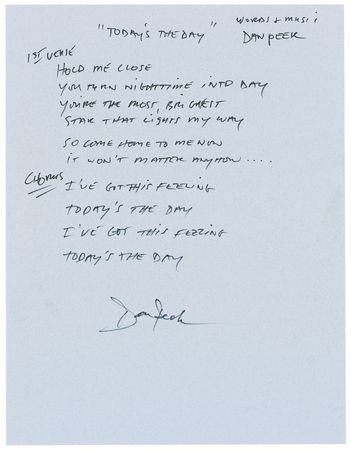 "TODAY'S THE DAY"
WORDS & MUSIC
DAN PEEK
1ST VERSE
HOLD ME CLOSE
YOU TURN NIGHTTIME INTO DAY
YOU'RE THE MOST, BRIGHTEST
STAR THAT LIGHTS MY WAY
SO COME HOME TO ME NOW
IT WON'T MATTER ANYHOW....
CHORUS
I'VE GOT THIS FEELING
TODAY'S THE DAY
I'VE GOT THIS FEELING
TODAY'S THE DAY
Dan Peek